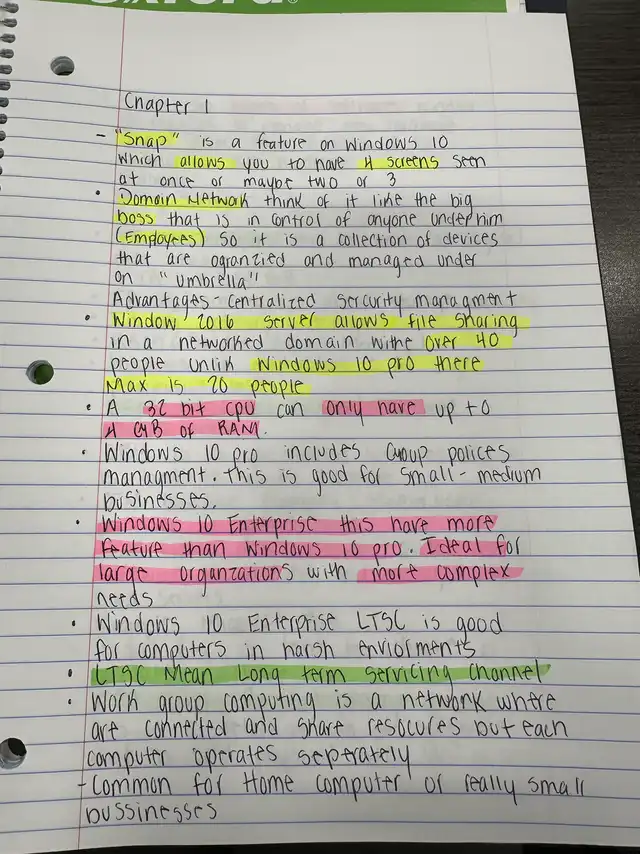 Chapter 1
- "Snap" is a feature on Windows 10
which allows you to have 4 screens seen
at once or maybe two or 3
• Domain Network think of it like the big
boss that is in control of anyone under him
(Employees) So it is a collection of devices
that are ogranzied and managed under
on "umbrella"
Advantages - centralized sercurity managment
• Window 2016 server allows file sharing
in a networked domain withe over 40
people unlik Windows 10 pro there
Max is 20 people
• A 32 bit cpu can only have up to
4 GB of RAM.
• Windows 10 pro includes Group polices
managment. this is good for small-medium
businesses.
• Windows 10 Enterprise this have more
feature than Windows 10 pro. Ideal for
large organzations with more complex
needs
• Windows 10 Enterprise LTSC is good
for computers in harsh enviorments
• LTSC Mean Long term servicing channel
• Work group computing is a network where
are connected and share resocures but each
computer operates seperately
- Common for Home computer or really small
bussinesses